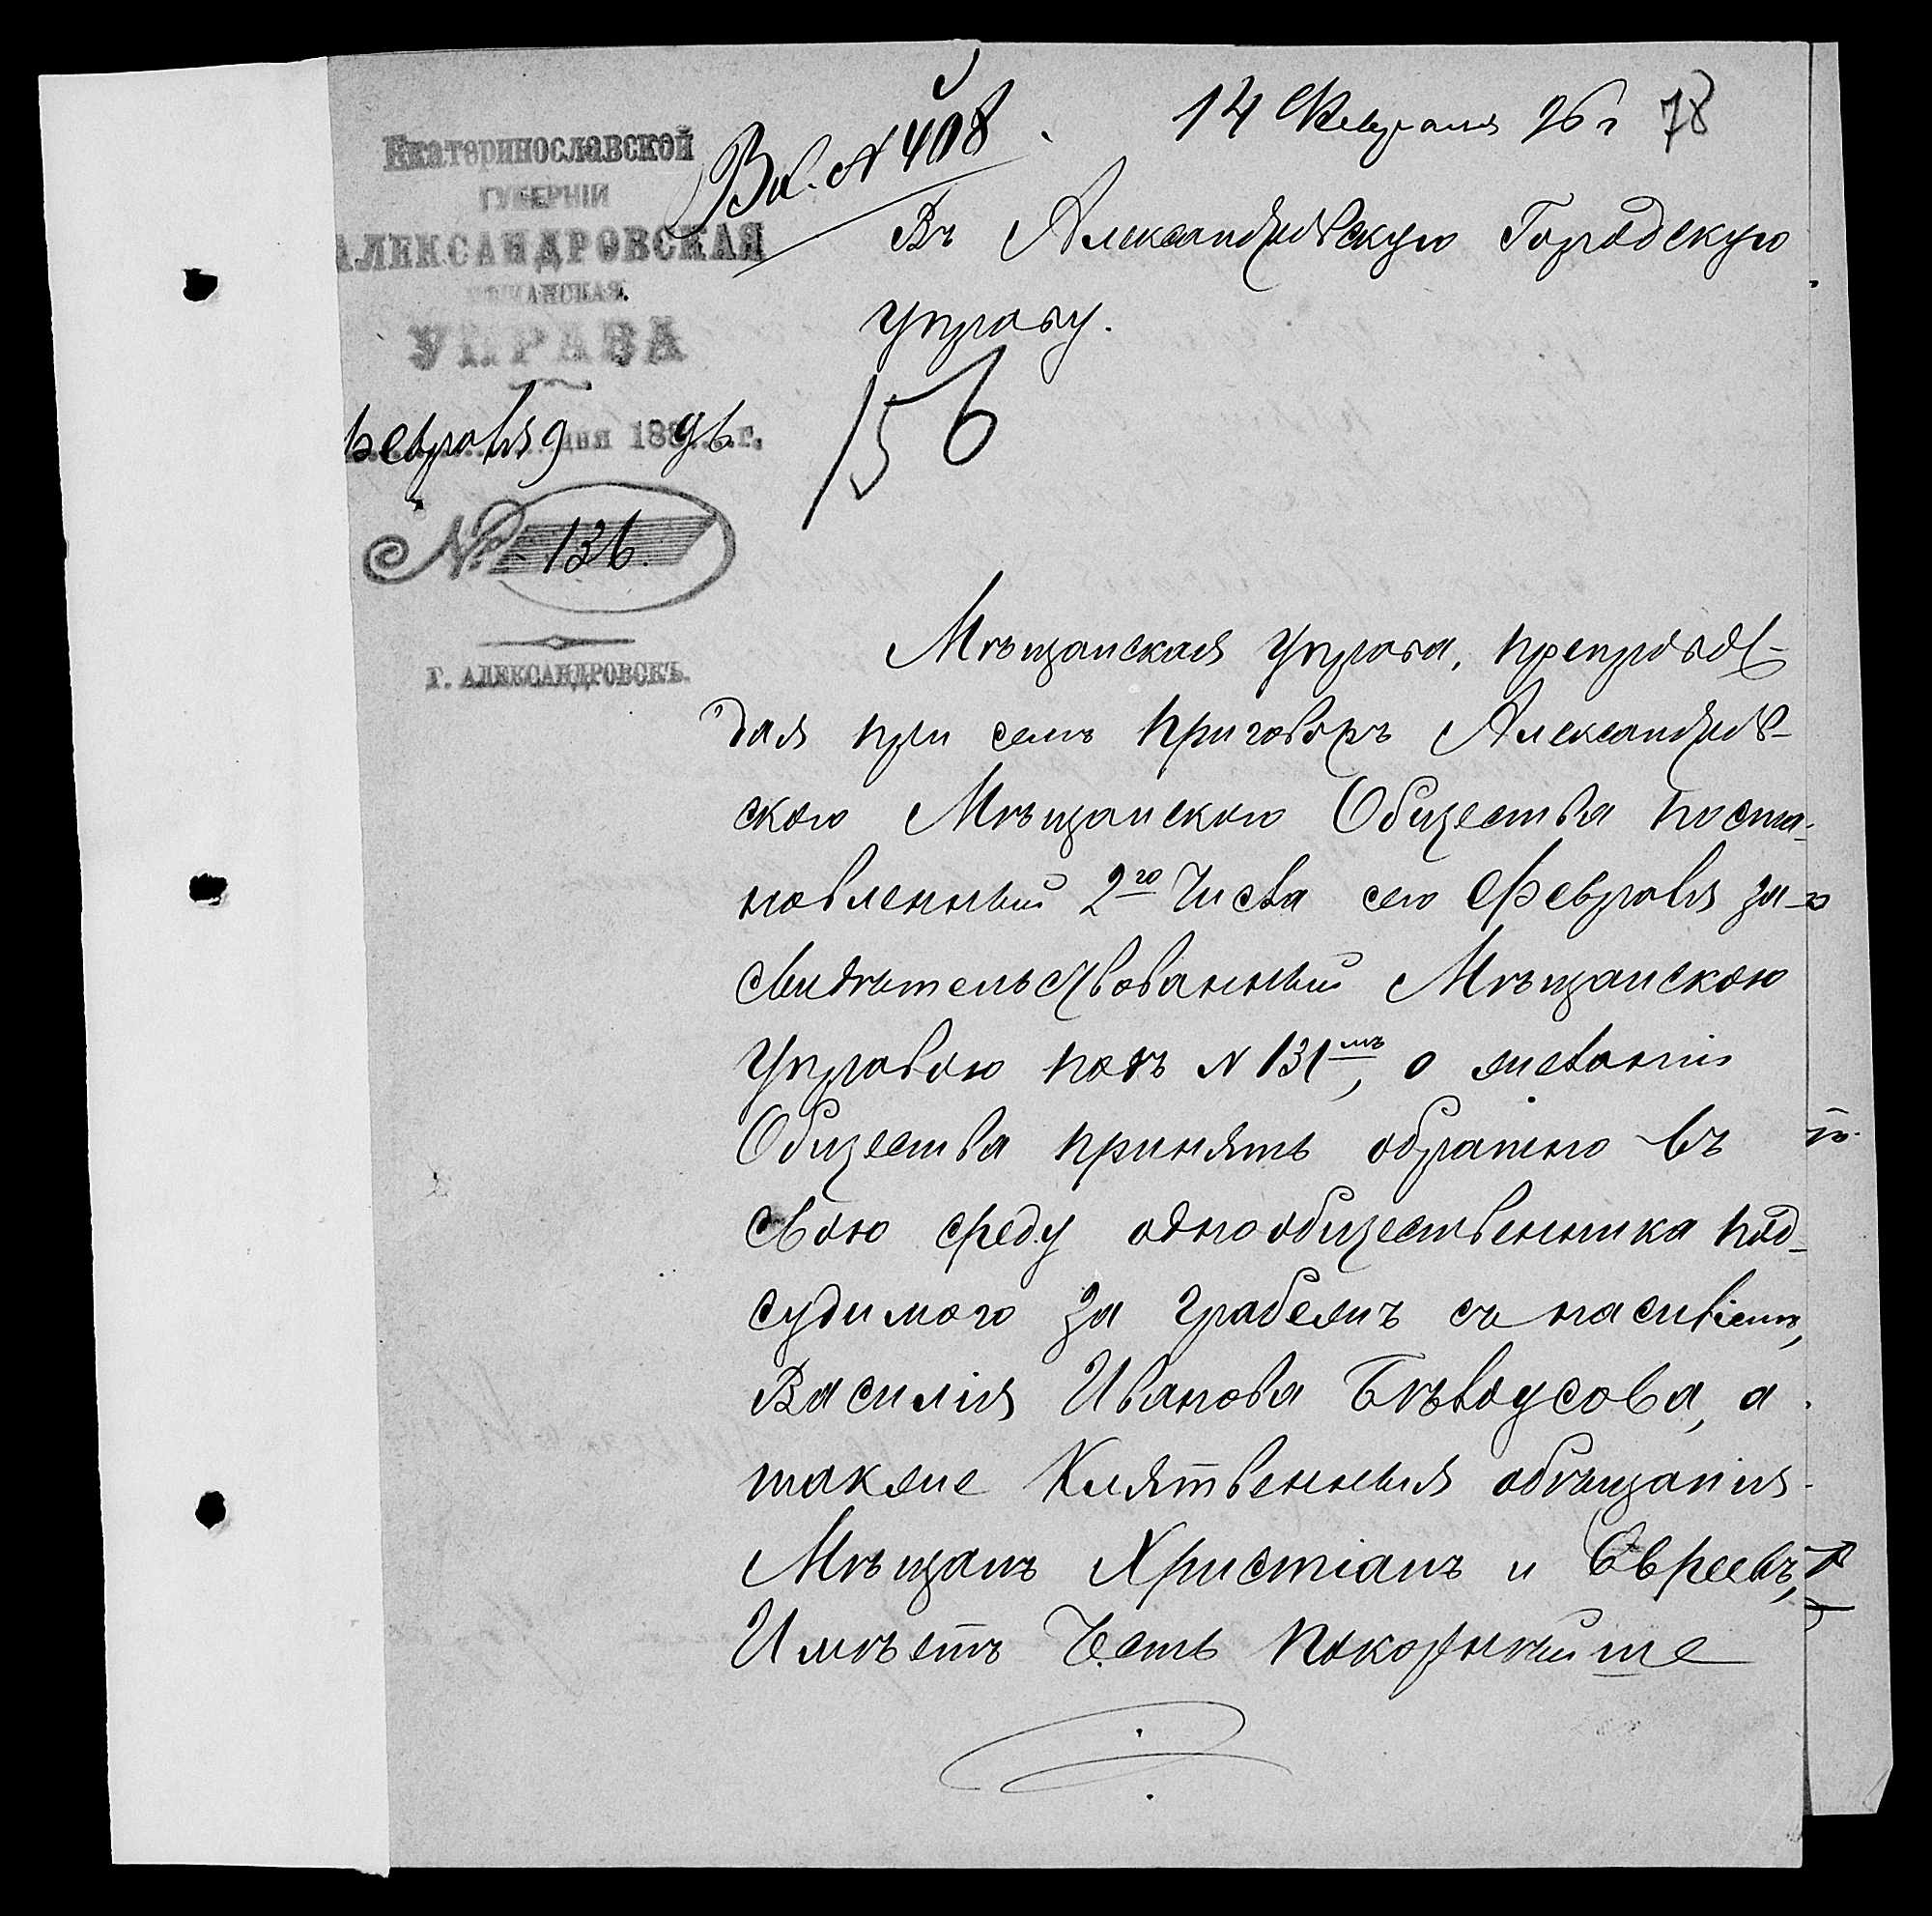 14 Февраля 96 г 78
Вх. N 408
Екатеринославской
ГУБЕРНІИ
АЛЕКСАНДРОВСКАЯ
МѢЩАНСКАЯ
УПРАВА
Февраля 9 дня 189 96 г.
№ 136.
Г. АЛЕКСАНДРОВСКЪ.
Въ Александровскую Городскую
Управу.
156
Мѣщанская Управа, препровож-
дая при семъ приговоръ Александров-
скаго Мѣщанскаго Общества поста-
новленный 2го Числа сего Февраля за-
свидѣтельствованный Мѣщанскою
Управою подъ N 131мъ, о желаніи
Общества принять обратно въ
свою среду однообщественника под-
судимого за грабежъ съ насиліемъ,
Василія Иванова Бѣлоусова, а
также Клятвенныя обѣщанія
Мѣщанъ Христіанъ и Евреевъ,
Имѣетъ Честь покорнѣйше